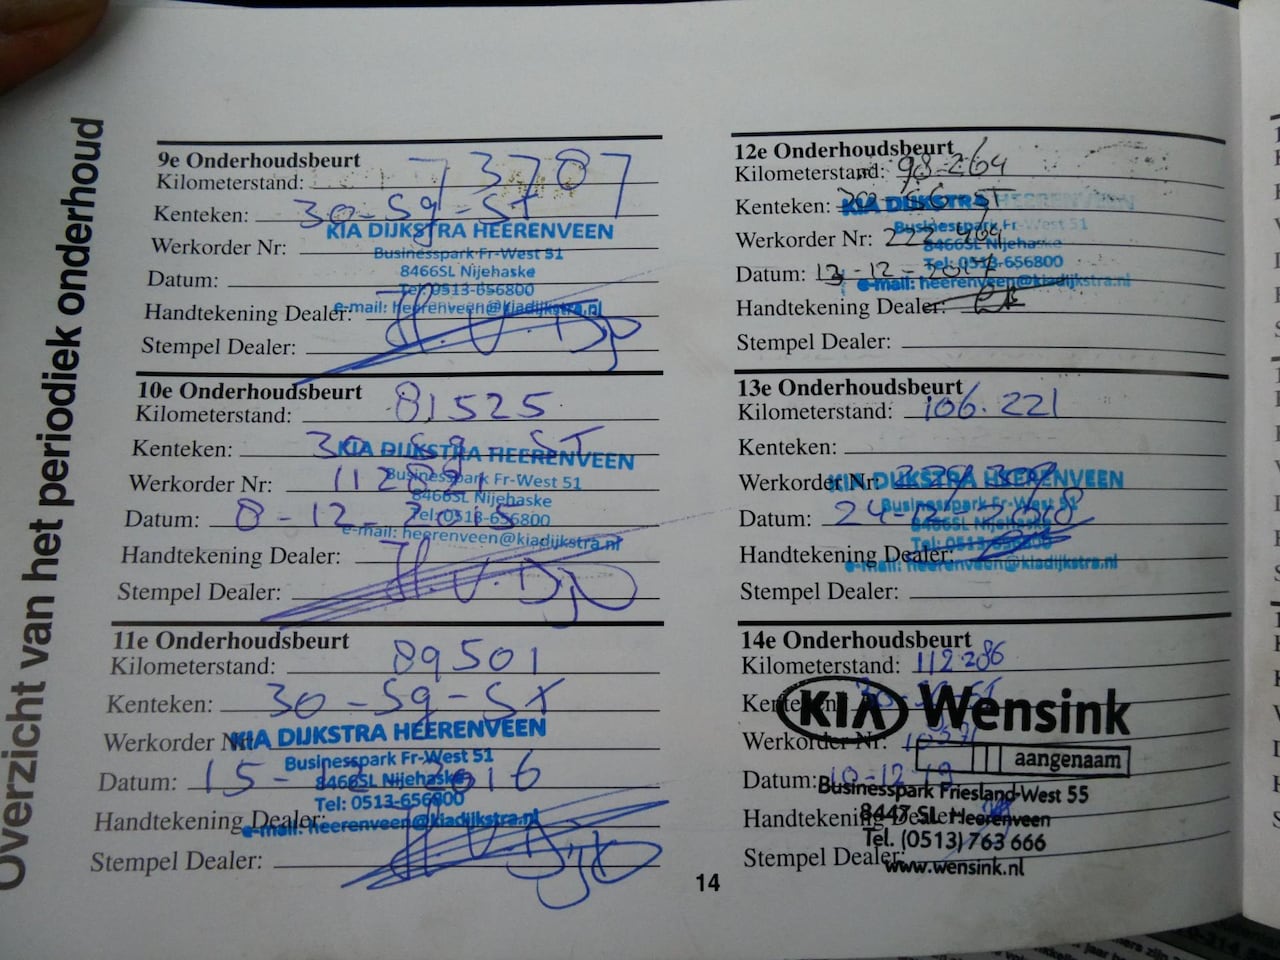 Overzicht van het periodiek onderhoud
9e Onderhoudsbeurt
Kilometerstand: 73787
Kenteken: 30-Sg-ST
KIA DIJKSTRA HEERENVEEN
Werkorder Nr:
Businesspark Fr-West 51
8466SL Nijehaske
Datum:
Tel: 0513-656800
e-mail: heerenveen@kiadijkstra.nl
Handtekening Dealer:
Stempel Dealer:
10e Onderhoudsbeurt
Kilometerstand: 81525
Kenteken: 30-Sg-ST
KIA DIJKSTRA HEERENVEEN
Werkorder Nr:
Businesspark Fr-West 51
8466SL Nijehaske
Datum: 8-12-2015
Tel: 0513-656800
e-mail: heerenveen@kiadijkstra.nl
Handtekening Dealer:
Stempel Dealer:
11e Onderhoudsbeurt
Kilometerstand: 89501
Kenteken: 30-Sg-ST
KIA DIJKSTRA HEERENVEEN
Werkorder Nr:
Businesspark Fr-West 51
Datum: 15-12-2016
8466SL Nijehaske
Tel: 0513-656800
Handtekening Dealer:
e-mail: heerenveen@kiadijkstra.nl
Stempel Dealer:
12e Onderhoudsbeurt
Kilometerstand: 98.264
Kenteken:
KIA DIJKSTRA HEERENVEEN
Businesspark Fr-West 51
Werkorder Nr:
8466SL Nijehaske
Tel: 0513-656800
Datum: 13-12-2017
e-mail: heerenveen@kiadijkstra.nl
Handtekening Dealer:
Stempel Dealer:
13e Onderhoudsbeurt
Kilometerstand: 106.221
Kenteken:
Werkorder Nr:
KIA DIJKSTRA HEERENVEEN
Businesspark Fr-West 51
Datum: 24-12-2018
8466SL Nijehaske
Tel: 0513-656800
Handtekening Dealer:
e-mail: heerenveen@kiadijkstra.nl
Stempel Dealer:
14e Onderhoudsbeurt
Kilometerstand: 112286
Kenteken:
KIA Wensink
Werkorder Nr:
aangenaam
Datum: 10-12-19
Businesspark Friesland-West 55
8447 SL Heerenveen
Handtekening Dealer:
Tel. (0513) 763 666
Stempel Dealer:
www.wensink.nl
14